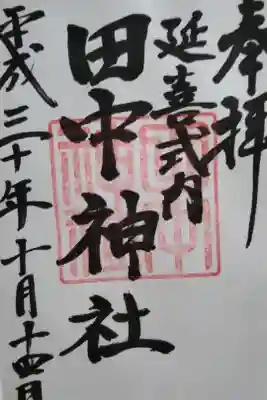 奉拝
延喜式内
田中神社
平成三十年十月十四日